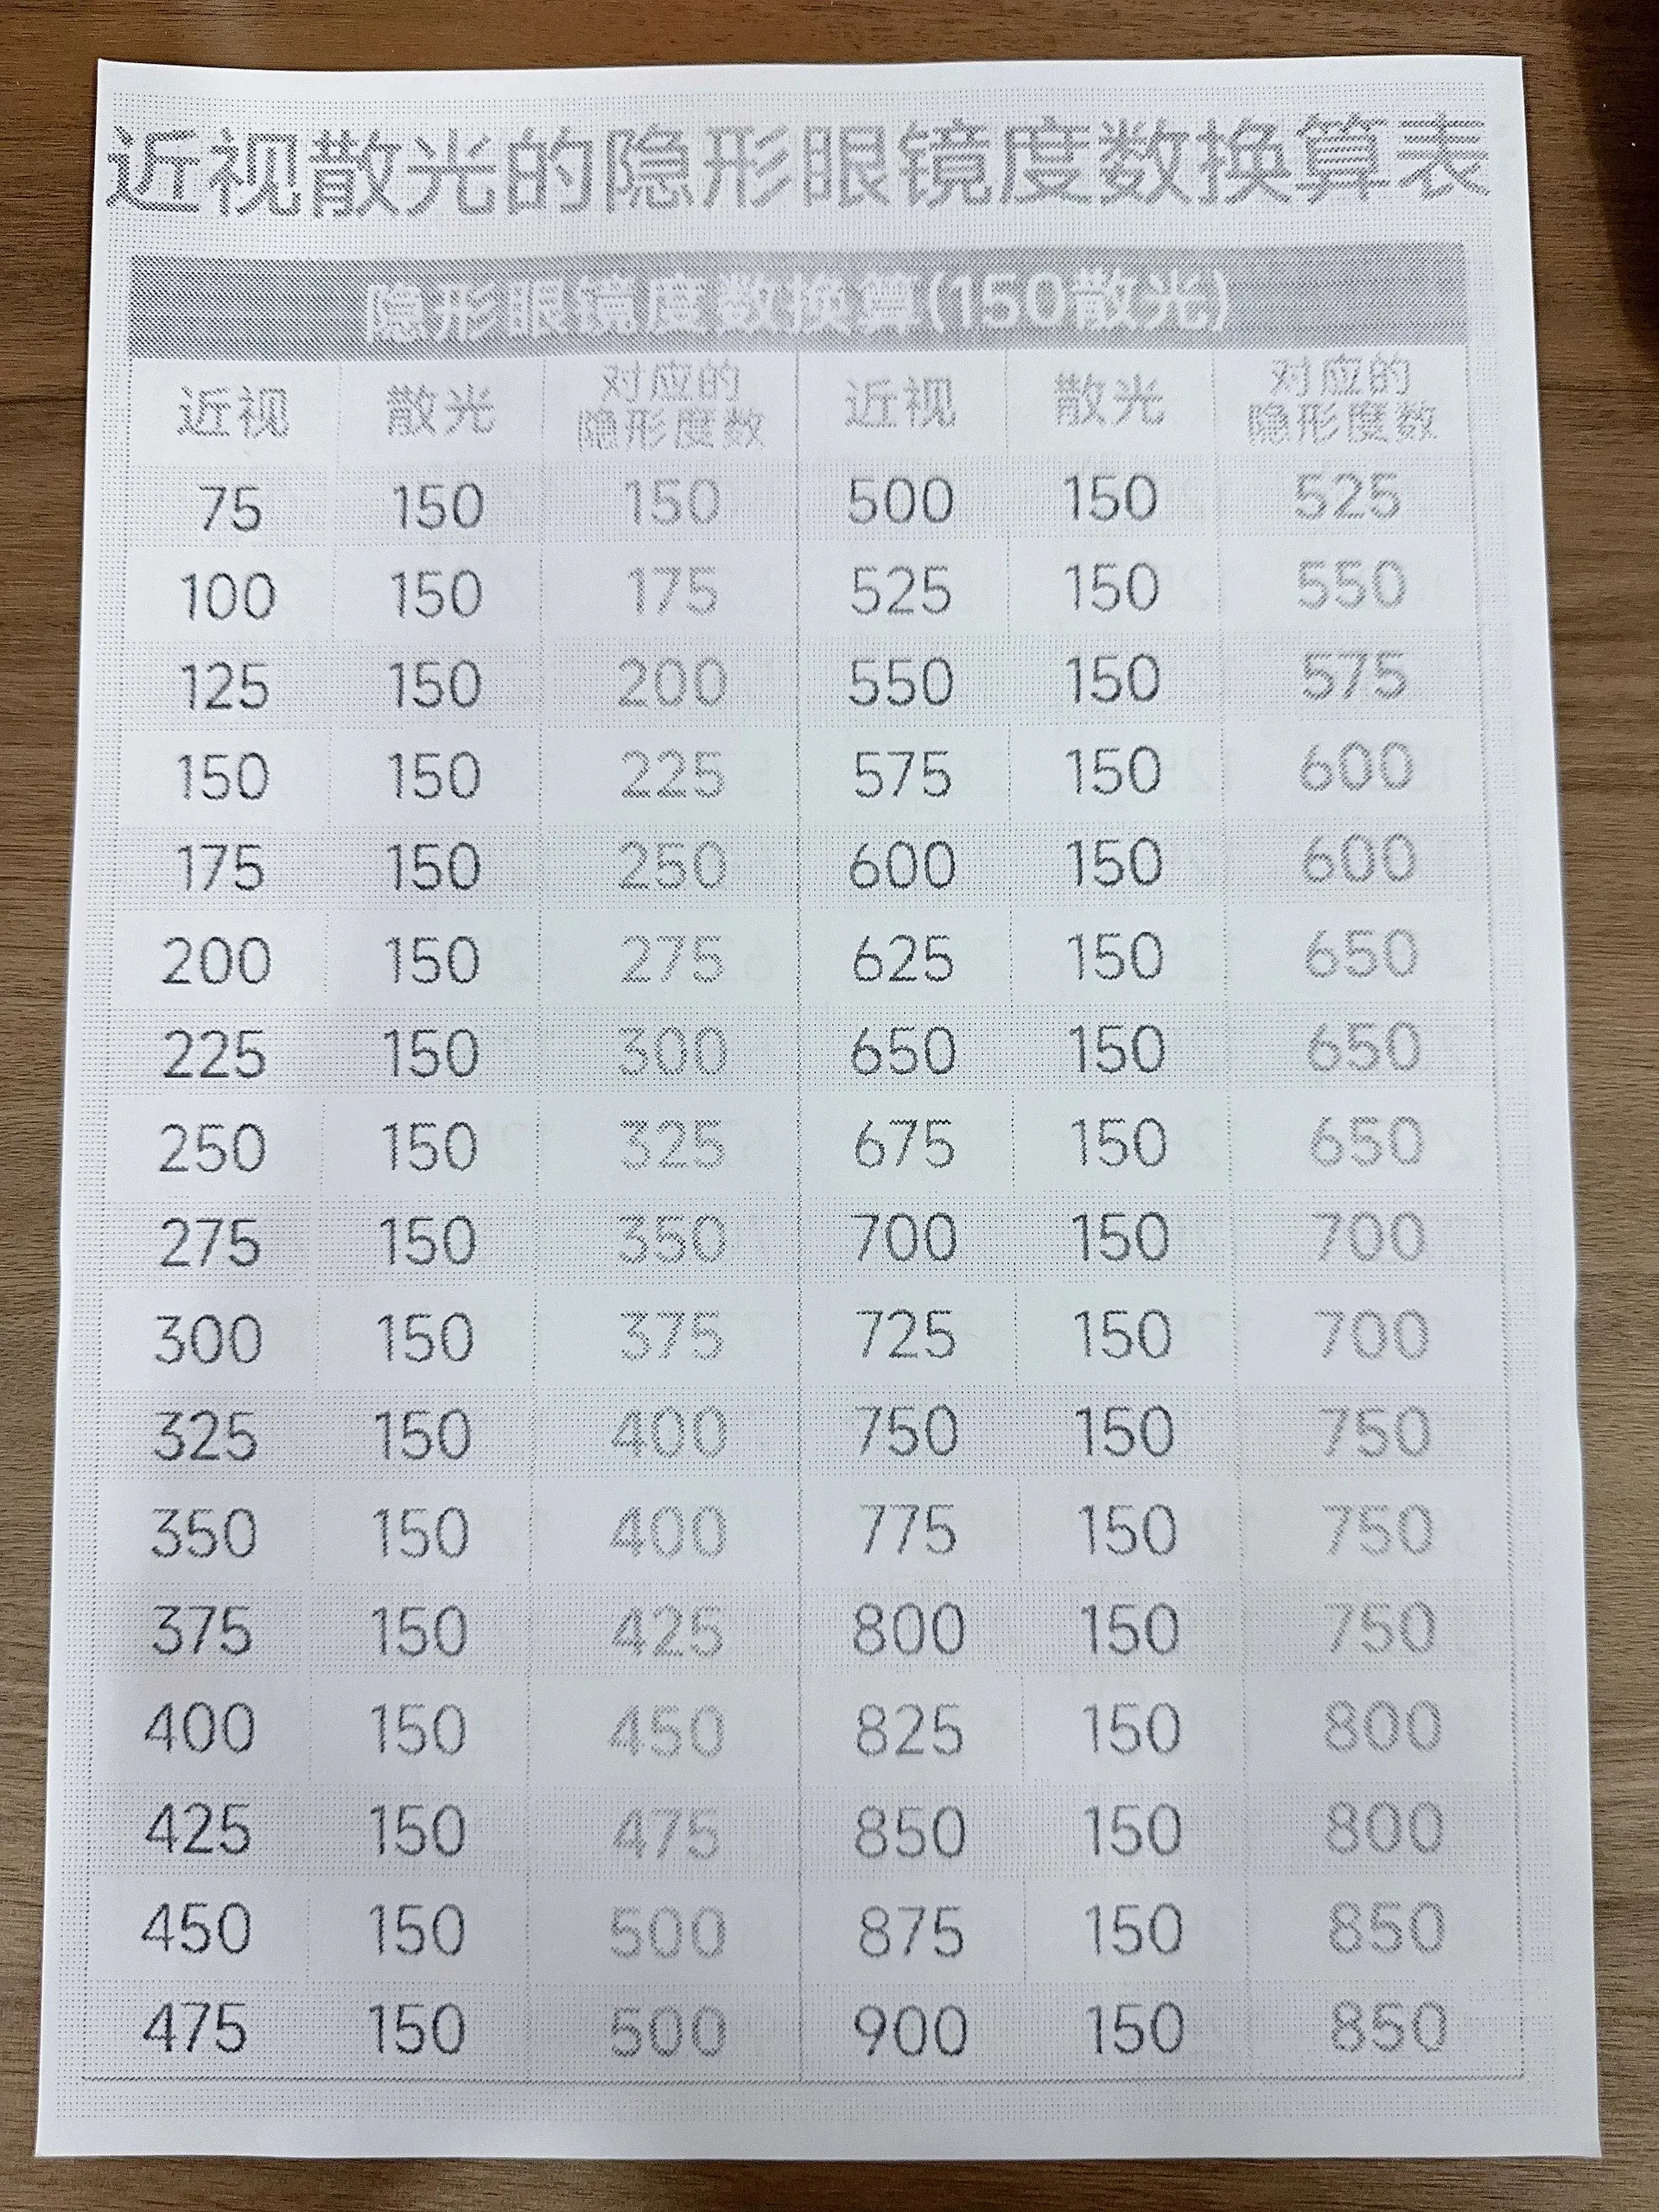 近视散光的隐形眼镜度数换算表
隐形眼镜度数换算(150散光)
近视 散光 对应的隐形度数 近视 散光 对应的隐形度数
75 150 150 500 150 525
100 150 175 525 150 550
125 150 200 550 150 575
150 150 225 575 150 600
175 150 250 600 150 600
200 150 275 625 150 650
225 150 300 650 150 650
250 150 325 675 150 650
275 150 350 700 150 700
300 150 375 725 150 700
325 150 400 750 150 750
350 150 400 775 150 750
375 150 425 800 150 750
400 150 450 825 150 800
425 150 475 850 150 800
450 150 500 875 150 850
475 150 500 900 150 850